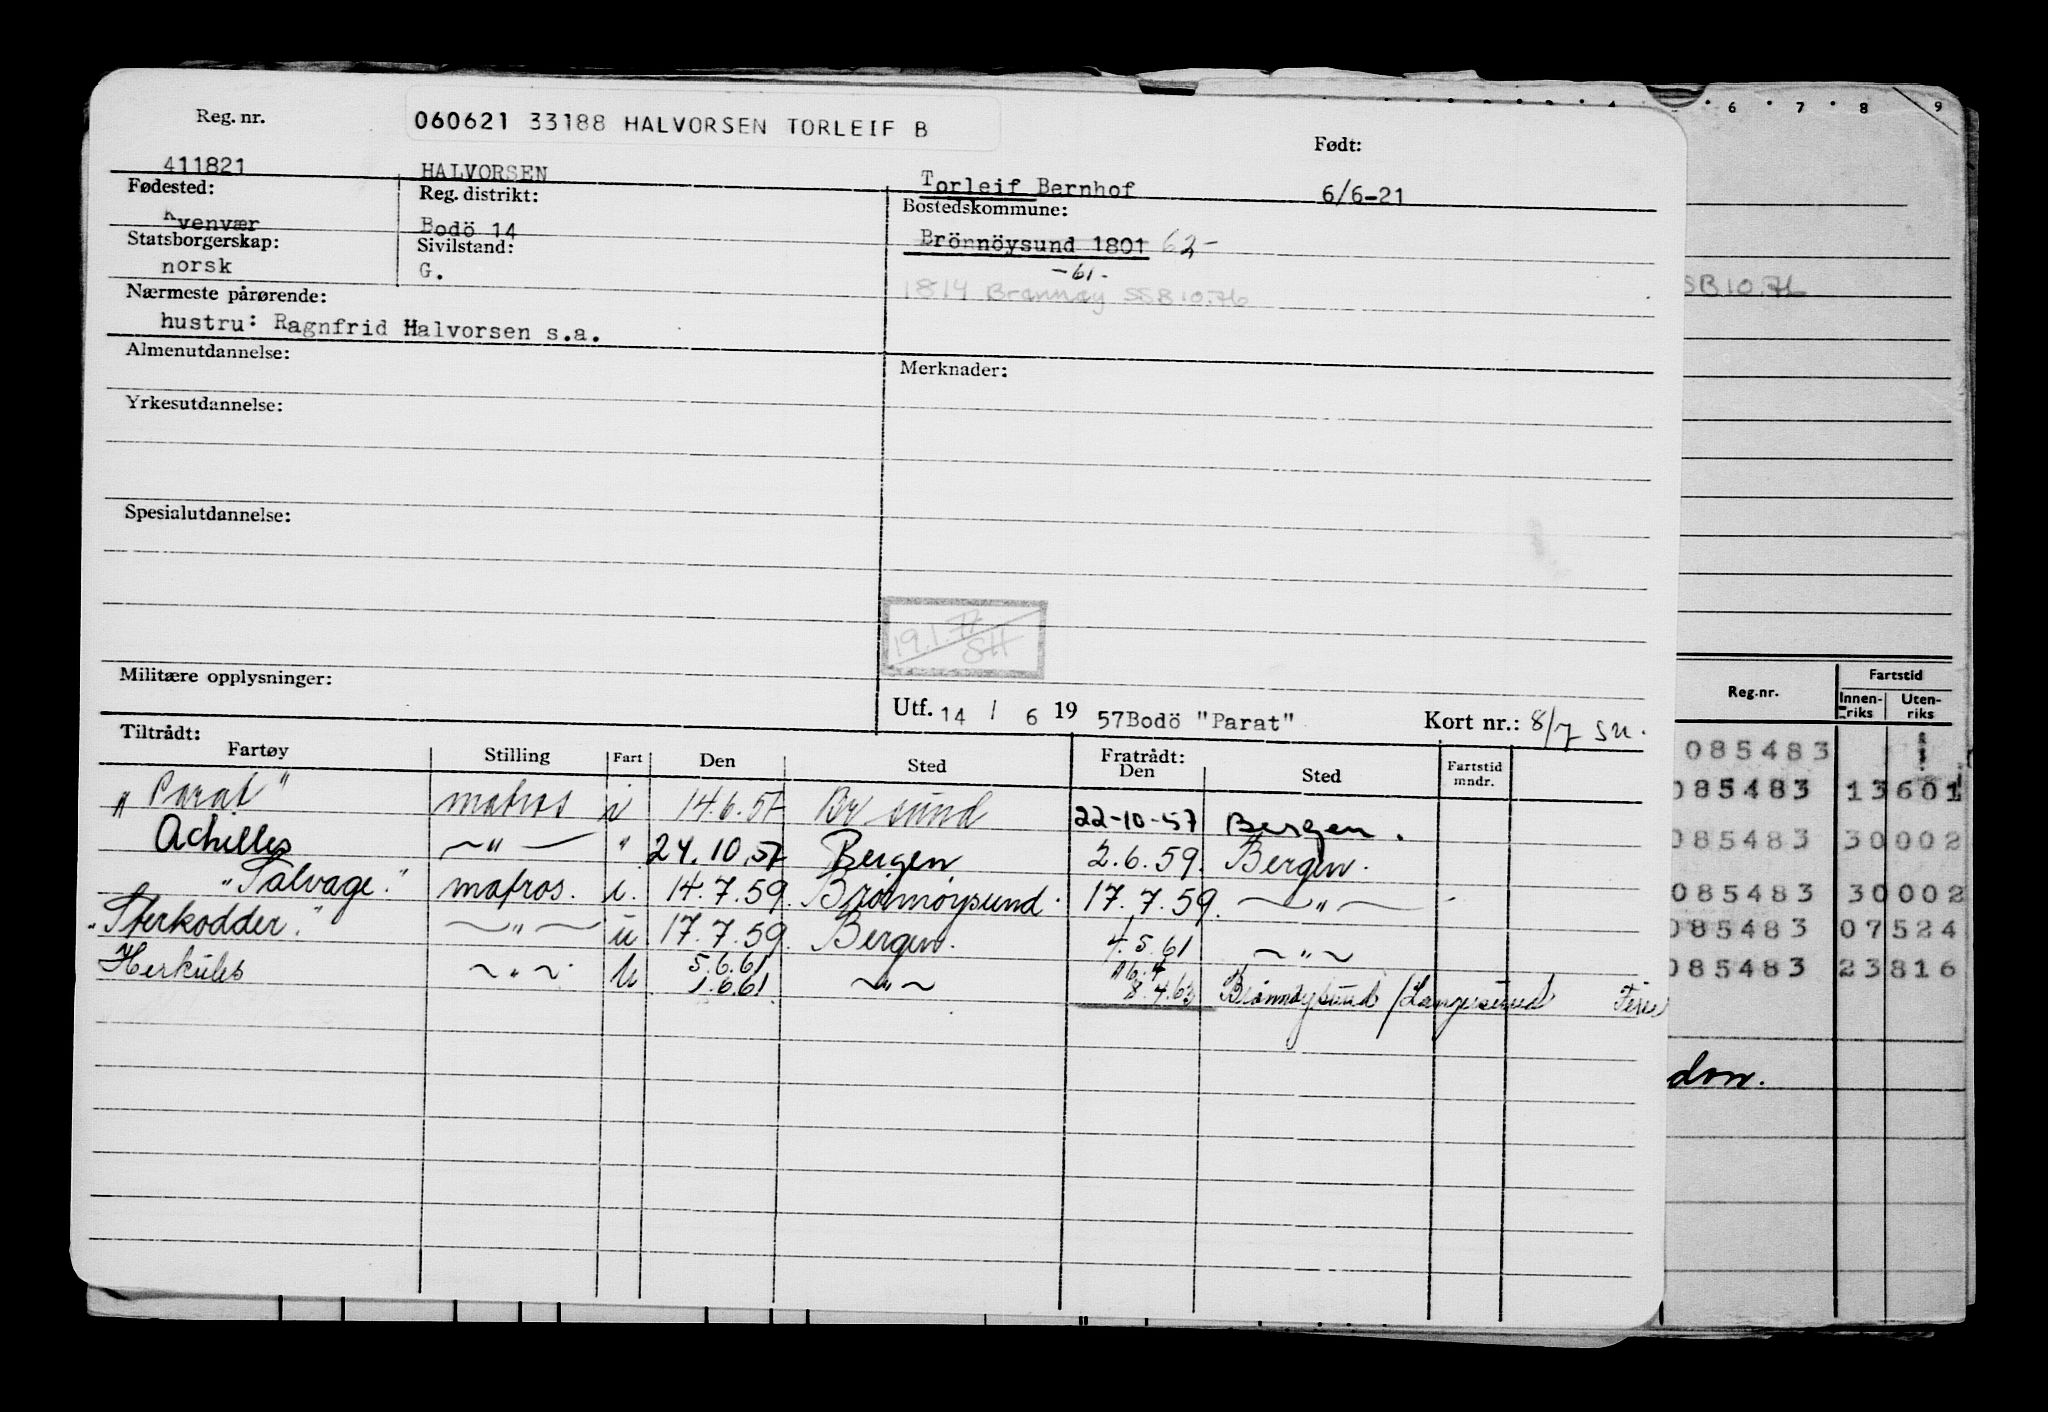 6 7 8 9
Reg. nr. 060621 33188 HALVORSEN TORLEIF B Født:
411821 HALVORSEN Torleif Bernhof 6/6-21
Fødested: Reg. distrikt: Bostedskommune:
Kvenvær Bodö 14 Brönnöysund 1801 62-
Statsborgerskap: Sivilstand: -61-
norsk G. 1814 Brønnøy SSB 10.76 SB 10.76
Nærmeste pårørende:
hustru: Ragnfrid Halvorsen s.a.
Almenutdannelse: Merknader:
Yrkesutdannelse:
Spesialutdannelse:
19.1.77 SH
Militære opplysninger:
Utf. 14 / 6 19 57 Bodö "Parat" Kort nr.: 8/7 sn.
Tiltrådt: Fratrådt:
Fartøy Stilling Fart Den Sted Den Sted Fartstid mndr.
"Parat" matros i 14.6.57 Br sund 22-10-57 Bergen.
Achilles ~"~ " 24.10.57 Bergen 2.6.59. Bergen.
"Salvage." matros. i. 14.7.59. Brønnøysund. 17.7.59. ~"~ -
"Sterkodder." ~"~ u 17.7.59. Bergen. 4.5.61 ~"~
Herkules ~"~ u 5.6.61 1.6.61 ~"~ 16.4 8.4.63 Brønnøysund / Langesund Ferie
Reg.nr. Fartstid
Innenriks Utenriks
085483
085483 13 601
085483 30 002
085483 30 002
085483 07 524
085483 23 816
don.